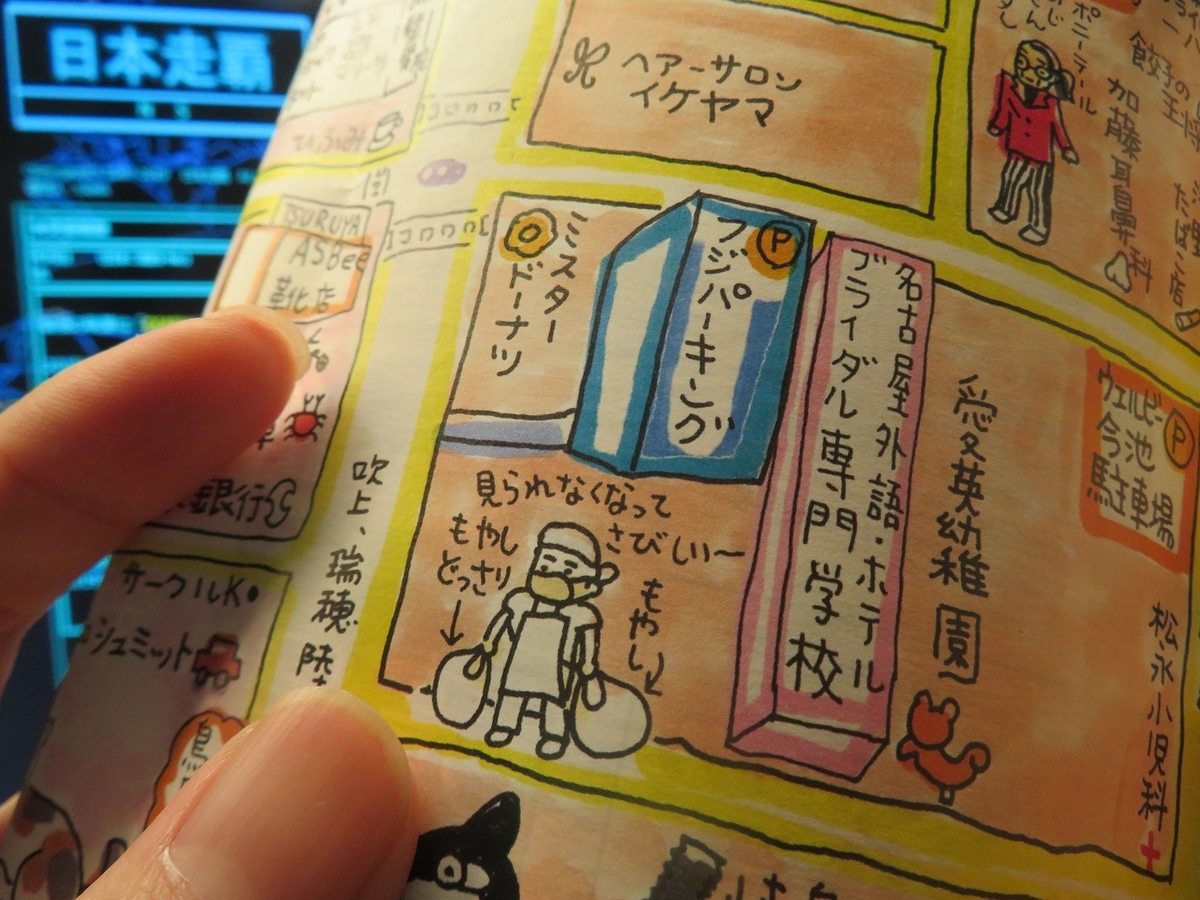 日本走覇
ヘアーサロン
イケヤマ
ポニーテール
餃子の王将
加藤耳鼻科
TSURUYA
ASBee
ミスター
ドーナツ
P
フジパーキング
名古屋外語・ホテル
ブライダル専門学校
愛英幼稚園
P
ウェルビー
今池
駐車場
松永小児科
見られなくなって
さびしい〜
もやし
どっさり
もやし
吹上、瑞穂
銀行
サークルK